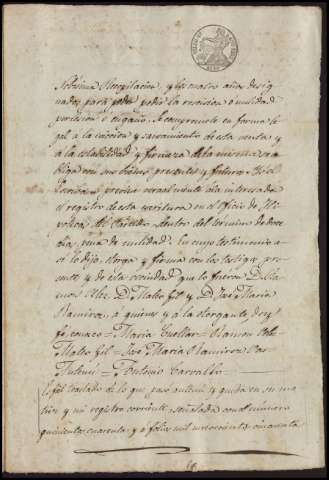 Novísima Recopilacion, y los cuatro años desig-
nados para pedir la rescision o nulidad
por lesion o engaño. Se compromete en forma le-
gal a la eviccion y saneamiento de esta venta y
a la estabilidad y firmeza de la misma o-
bliga con sus bienes presentes y futuros. Yo el
Escribano previne verbalmente a la interesada
el registro de esta escritura en el oficio de Hi-
potecas del Partido dentro del termino de doce
dias, pena de nulidad. En cuyo testimonio a-
si lo dijo, otorga y firma con los testigos pre-
sentes y de esta vecindad que lo fueron D. Ra-
mon Velez, D. Mateo Gil y D. José Maria
Ramirez, a quienes y a la otorgante, doy
fé conozco = Maria Cuellar = Ramon Velez
Mateo Gil = José Maria Ramirez =
Antemi = Antonio Carvallo =
Es fiel traslado de lo que pasó antemi y queda en su ma-
triz y mi registro corriente, señalada con el número
quinientos cuarenta, y a folios mil novecientos cincuenta